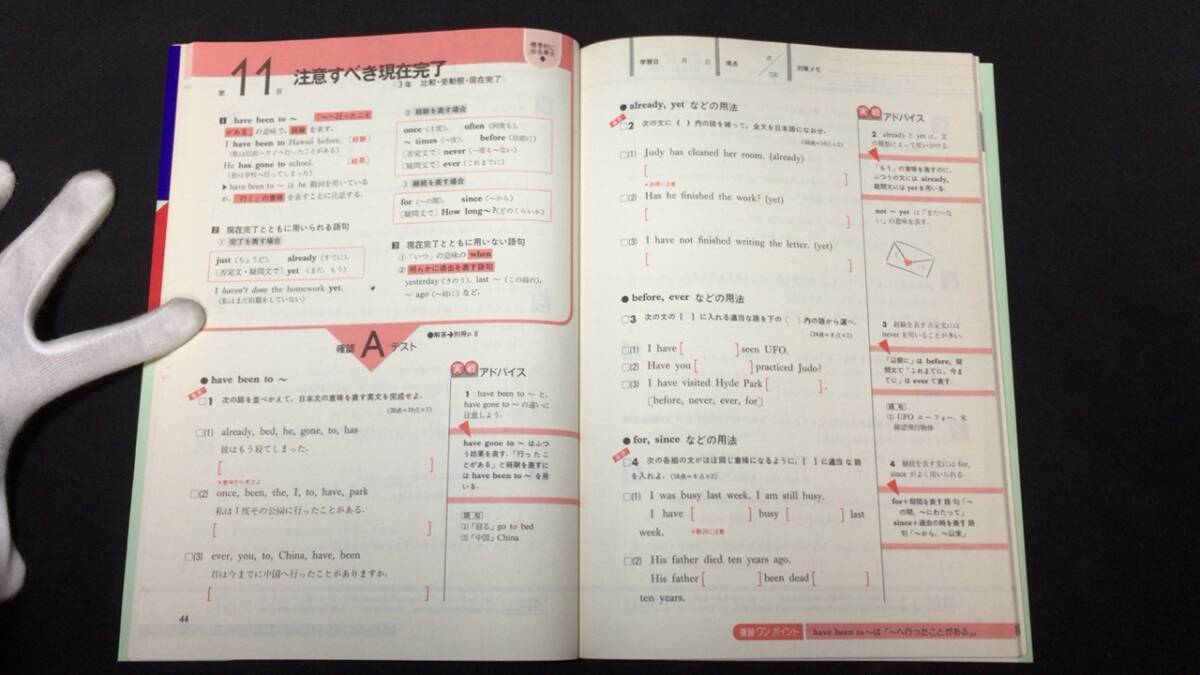 第11日 注意すべき現在完了
標準的に出る単元
〔3年 比較・受動態・現在完了〕
1 have been to ~ 「~へ行ったこと
がある」の意味で、経験を表す。
I have been to Hawaii before. 〔経験〕
（私は以前ハワイへ行ったことがある）
He has gone to school. 〔結果〕
（彼は学校へ行ってしまった）
▶have been to ~ は be 動詞を用いている
が，「行く」の意味を表すことに注意する。
2 現在完了とともに用いられる語句
① 完了を表す場合
just（ちょうど），already（すでに），
〔否定文・疑問文で〕yet（まだ，もう）
I haven't done the homework yet.
（私はまだ宿題をしていない）
② 経験を表す場合
once（1度），often（何度も），
~ times（~度），before（以前に）
〔否定文で〕never（一度も~ない）
〔疑問文で〕ever（これまでに）
③ 継続を表す場合
for（~の間），since（~から）
〔疑問文で〕How long~?（どのくらいか）
3 現在完了とともに用いない語句
①「いつ」の意味の when
② 明らかに過去を表す語句
yesterday（きのう），last ~（この前の），
~ ago（~前に）など。
●解答→別冊p.8
確認 A テスト
●have been to ~
1 次の語を並べかえて，日本文の意味を表す英文を完成せよ。
(30点=10点×3)
(1) already, bed, he, gone, to, has
彼はもう寝てしまった。
[ ]
(2) once, been, the, I, to, have, park
私は1度その公園に行ったことがある。
[ ]
(3) ever, you, to, China, have, been
君は今までに中国へ行ったことがありますか。
[ ]
実戦アドバイス
1 have been to ~ と，
have gone to ~ の違いに
注意しよう。
have gone to ~ はふつ
う結果を表す。「行ったこ
とがある」と経験を表すに
は have been to ~ を用
いる。
語句
(1)「寝る」go to bed
(3)「中国」China
44
学習日 月 日 得点 点/100 対策メモ
●already, yet などの用法
2 次の文に（ ）内の語を補って，全文を日本語になおせ。
(30点=10点×3)
(1) Judy has cleaned her room. (already)
[ ]
(2) Has he finished the work? (yet)
[ ]
(3) I have not finished writing the letter. (yet)
[ ]
●before, ever などの用法
3 次の文の [ ] に入れる適当な語を下の（ ）内の語から選べ。
(24点=8点×3)
(1) I have [ ] seen UFO.
(2) Have you [ ] practiced Judo?
(3) I have visited Hyde Park [ ].
〔before, never, ever, for〕
●for, since などの用法
4 次の各組の文がほぼ同じ意味になるように，[ ] に適当な語
を入れよ。(16点=8点×2)
(1) I was busy last week. I am still busy.
I have [ ] busy [ ] last
week. *動詞に注意
(2) His father died ten years ago.
His father [ ] been dead [ ]
ten years.
実戦アドバイス
2 already と yet は，文
の種類によって使い分ける。
「もう」の意味を表すのに，
ふつうの文には already,
疑問文には yet を用いる。
not ~ yet は「まだ~な
い」の意味を表す。
3 経験を表す否定文には
never を用いることが多い。
「以前に」は before, 疑
問文で「これまでに，今ま
でに」は ever で表す。
語句
(1) UFO ユーフォー，未
確認飛行物体
4 継続を表す文には for,
since がよく用いられる。
for+期間を表す語句「~
の間，~にわたって」
since+過去の時を表す語
句「~から，~以来」
復習ワンポイント have been to ~は「~へ行ったことがある」。